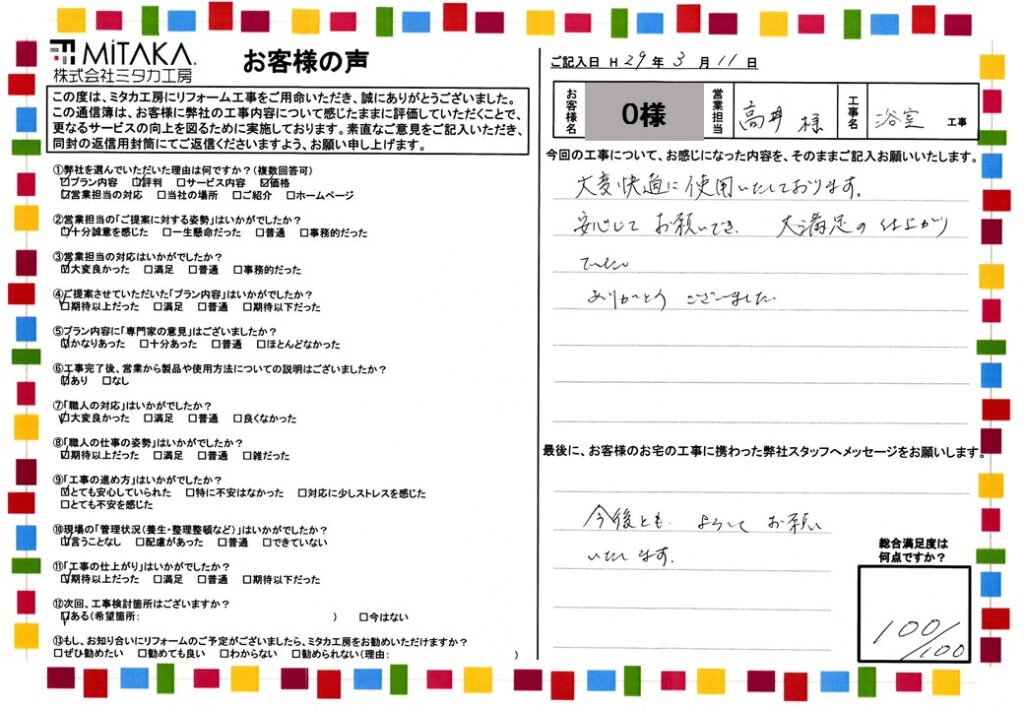 MiTAKA.
株式会社ミタカ工房
お客様の声
この度は、ミタカ工房にリフォーム工事をご用命いただき、誠にありがとうございました。
この通信簿は、お客様に弊社の工事内容について感じたままに評価していただくことで、
更なるサービスの向上を図るために実施しております。素直なご意見をご記入いただき、
同封の返信用封筒にてご返信くださいますよう、お願い申し上げます。
①弊社を選んでいただいた理由は何ですか?(複数回答可)
☑プラン内容 ☑評判 □サービス内容 ☑価格
☑営業担当の対応 □当社の場所 □ご紹介 □ホームページ
②営業担当の「ご提案に対する姿勢」はいかがでしたか?
☑十分誠意を感じた □一生懸命だった □普通 □事務的だった
③営業担当の対応はいかがでしたか?
☑大変良かった □満足 □普通 □事務的だった
④ご提案させていただいた「プラン内容」はいかがでしたか?
☑期待以上だった □満足 □普通 □期待以下だった
⑤プラン内容に「専門家の意見」はございましたか?
☑かなりあった □十分あった □普通 □ほとんどなかった
⑥工事完了後、営業から製品や使用方法についての説明はございましたか?
☑あり □なし
⑦「職人の対応」はいかがでしたか?
☑大変良かった □満足 □普通 □良くなかった
⑧「職人の仕事の姿勢」はいかがでしたか?
☑期待以上だった □満足 □普通 □雑だった
⑨「工事の進め方」はいかがでしたか?
☑とても安心していられた □特に不安はなかった □対応に少しストレスを感じた
□とても不安を感じた
⑩現場の「管理状況(養生・整理整頓など)」はいかがでしたか?
☑言うことなし □配慮があった □普通 □できていない
⑪「工事の仕上がり」はいかがでしたか?
☑期待以上だった □満足 □普通 □期待以下だった
⑫次回、工事検討箇所はございますか?
☑ある(希望箇所: ) □今はない
⑬もし、お知り合いにリフォームのご予定がございましたら、ミタカ工房をお勧めいただけますか?
□ぜひ勧めたい □勧めても良い □わからない □勧められない(理由: )
ご記入日 H 29 年 3 月 11 日
お客様名 O様 営業担当 高井 様 工事名 浴室 工事
今回の工事について、お感じになった内容を、そのままご記入お願いいたします。
大変快適に使用いたしております。
安心して お願いでき、 大満足の仕上がり
でした。
ありがとう ございました。
最後に、お客様のお宅の工事に携わった弊社スタッフへメッセージをお願いします。
今後とも、よろしく お願い
いたします。
総合満足度は
何点ですか?
100/100